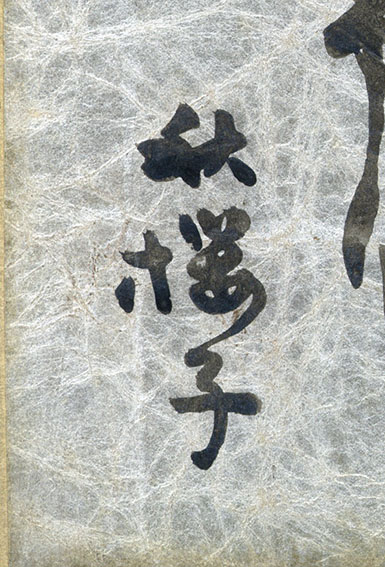 秋櫻子